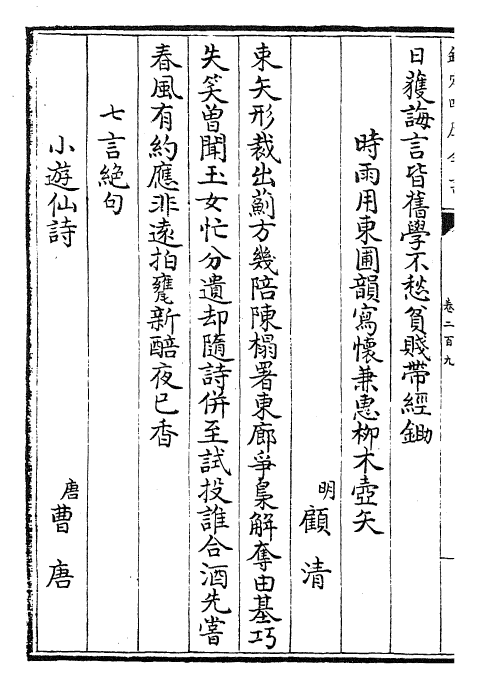 欽定四庫全書
卷二百九
日獲誨言皆舊學不愁貧賤帶經鋤
時雨用東圃韻寫懷兼惠柳木壺矢
明 顧清
束矢形裁出薊方幾陪陳榻署東廊爭梟解奪由基巧
失笑曾聞玉女忙分遺却隨詩併至試投誰合酒先嘗
春風有約應非遠拍甕新醅夜已香
七言絕句
小遊仙詩
唐 曹唐